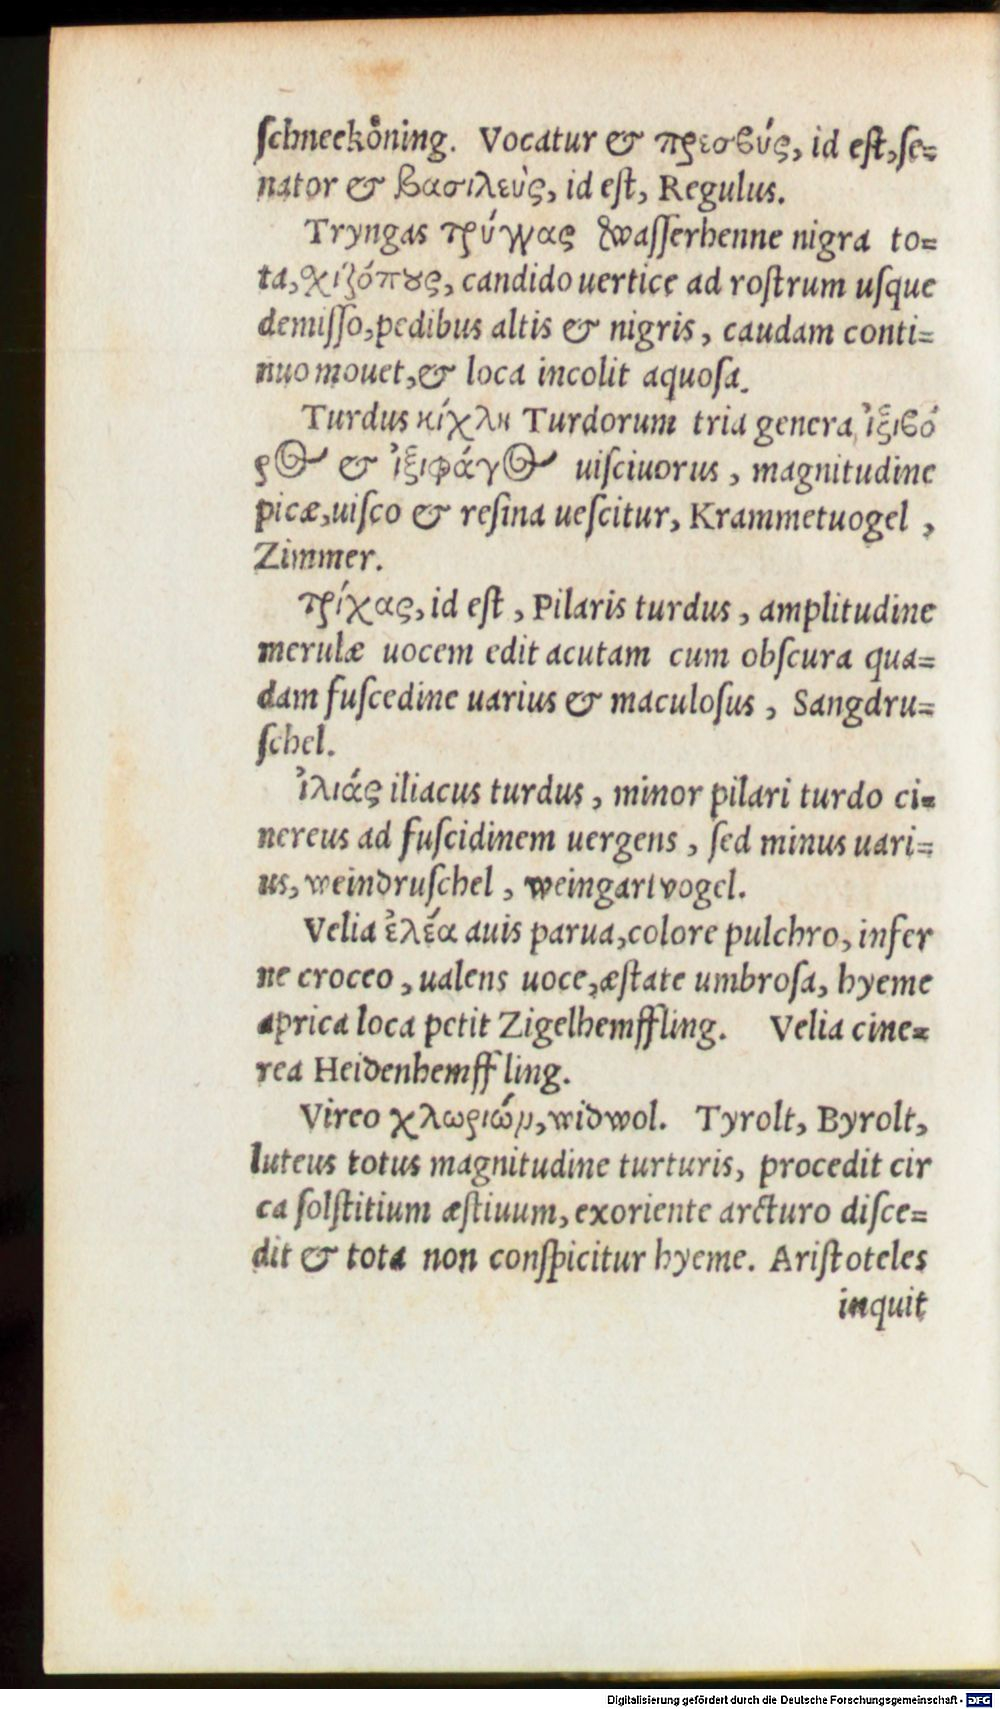 ſchneekoͤning. Vocatur & πρεσβύς, id eſt, ſe=
nator & βασιλεὺς, id eſt, Regulus.
Tryngas τρύγγας Waſſerhenne nigra to=
ta, χιζόπȣς, candido uertice ad roſtrum uſque
demiſſo, pedibus altis & nigris, caudam conti=
nuo mouet, & loca incolit aquoſa.
Turdus κίχλη Turdorum tria genera, ἰξιβό
ρος & ἰξιφάγος uiſciuorus, magnitudine
picæ, uiſco & reſina ueſcitur, Krammetuogel,
Zimmer.
τρίχας, id eſt, Pilaris turdus, amplitudine
merulæ uocem edit acutam cum obſcura qua=
dam fuſcedine uarius & maculoſus, Sangdru=
ſchel.
ἰλιάς iliacus turdus, minor pilari turdo ci=
nereus ad fuſcidinem uergens, ſed minus uari=
us, weindruſchel, weingartvogel.
Velia ἐλέα auis parua, colore pulchro, infer
ne croceo, ualens uoce, æſtate umbroſa, hyeme
aprica loca petit Zigelhemffling. Velia cine=
rea Heidenhemffling.
Vireo χλωριών, widwol. Tyrolt, Byrolt,
luteus totus magnitudine turturis, procedit cir
ca ſolſtitium æſtiuum, exoriente arcturo diſce=
dit & tota non conſpicitur hyeme. Ariſtoteles
inquit
Digitalisierung gefördert durch die Deutsche Forschungsgemeinschaft - DFG